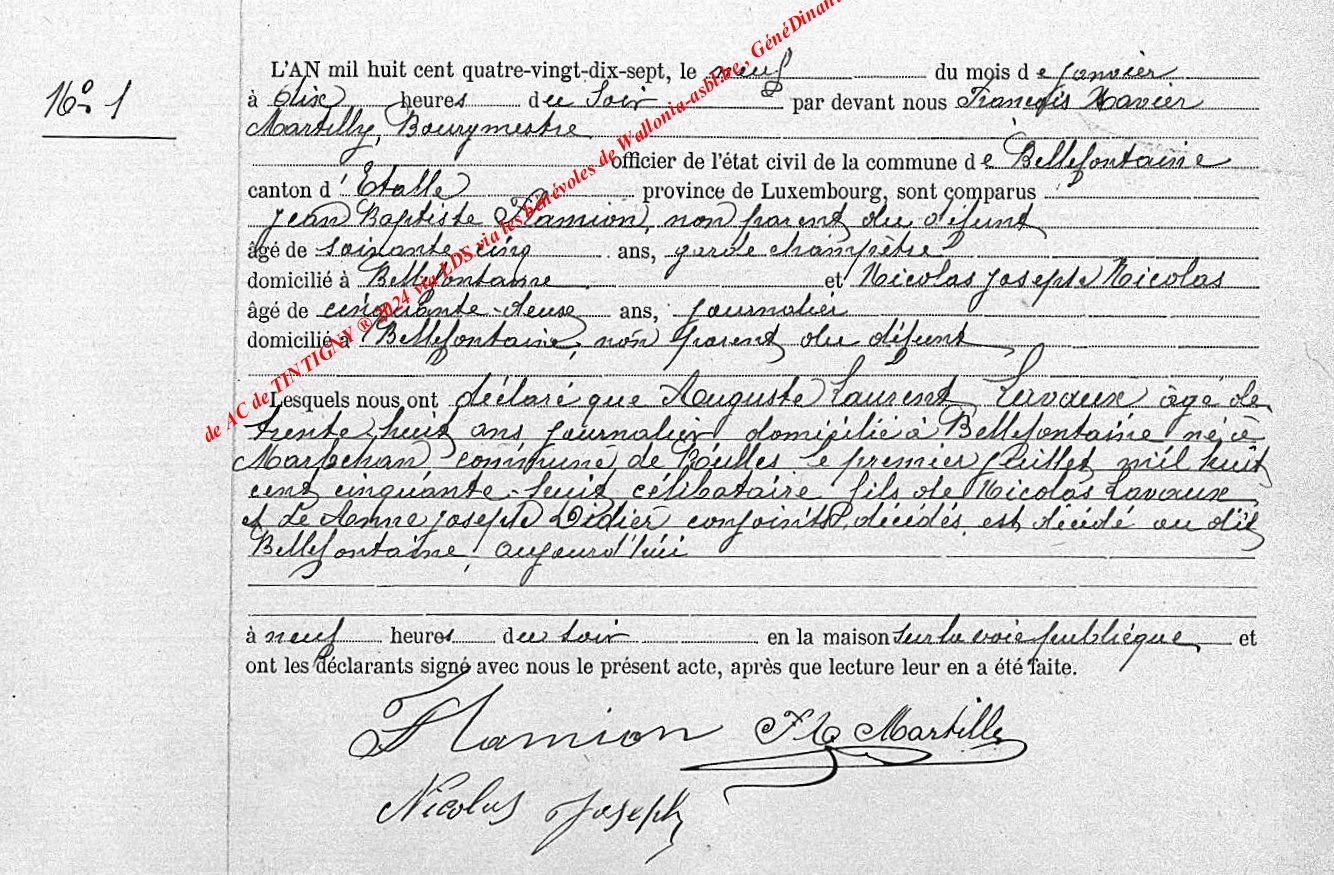 N° 1
L'AN mil huit cent quatre-vingt-dix-sept, le neuf du mois de janvier
à dix heures du soir par devant nous François Xavier
Martilly, Bourgmestre
officier de l'état civil de la commune de Bellefontaine
canton d'Etalle province de Luxembourg, sont comparus :
Jean Baptiste Flamion, non parent du défunt
âgé de soixante cinq ans, garde champêtre
domicilié à Bellefontaine et Nicolas Joseph Nicolas
âgé de cinquante-deux ans, journalier
domicilié à Bellefontaine, non parent du défunt
Lesquels nous ont déclaré que Auguste Laurent Lavaux âgé de
trente huit ans journalier domicilié à Bellefontaine né à
Marbehan commune de Rulles le premier juillet mil huit
cent cinquante-huit célibataire fils de Nicolas Lavaux
et de Anne Joseph Didier conjoints décédés est décédé au dit
Bellefontaine aujourd'hui
à neuf heures du soir en la maison sur la voie publique et
ont les déclarants signé avec nous le présent acte, après que lecture leur en a été faite.
Flamion FX Martilly
Nicolas Joseph
de AC de TINTIGNY ® 2024 via LDS via les bénévoles de Wallonia-asbl.be, GénéDinant